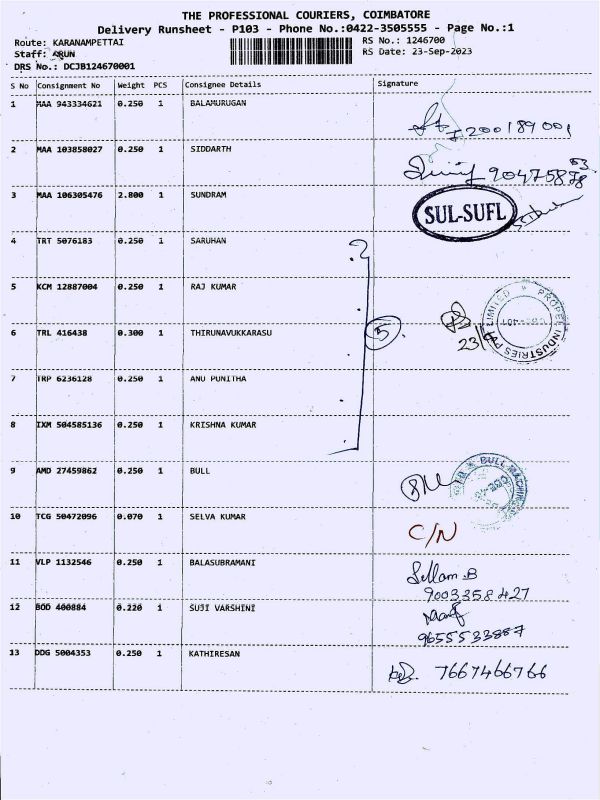 THE PROFESSIONAL COURIERS, COIMBATORE
Delivery Runsheet - P103 - Phone No.:0422-3505555 - Page No.:1
Route: KARANAMPETTAI RS No.: 1246700
Staff: ARUN RS Date: 23-Sep-2023
DRS No.: DCJB124670001
S No Consignment No Weight PCS Consignee Details Signature
1 MAA 943334621 0.250 1 BALAMURUGAN
2 MAA 103858027 0.250 1 SIDDARTH
3 MAA 106305476 2.800 1 SUNDRAM SUL-SUFL
4 TRT 5076183 0.250 1 SARUHAN
5 KCM 12887004 0.250 1 RAJ KUMAR
PROPEL INDUSTRIES LIMITED
6 TRL 416438 0.300 1 THIRUNAVUKKARASU 5
7 TRP 6236128 0.250 1 ANU PUNITHA
8 IXM 504585136 0.250 1 KRISHNA KUMAR
9 AMD 27459862 0.250 1 BULL
BULL MACHINES
10 TCG 50472096 0.070 1 SELVA KUMAR C/N
11 VLP 1132546 0.250 1 BALASUBRAMANI
9003358427
12 BOD 400884 0.220 1 SUJI VARSHINI
9655533887
13 DDG 5004353 0.250 1 KATHIRESAN 7667466766